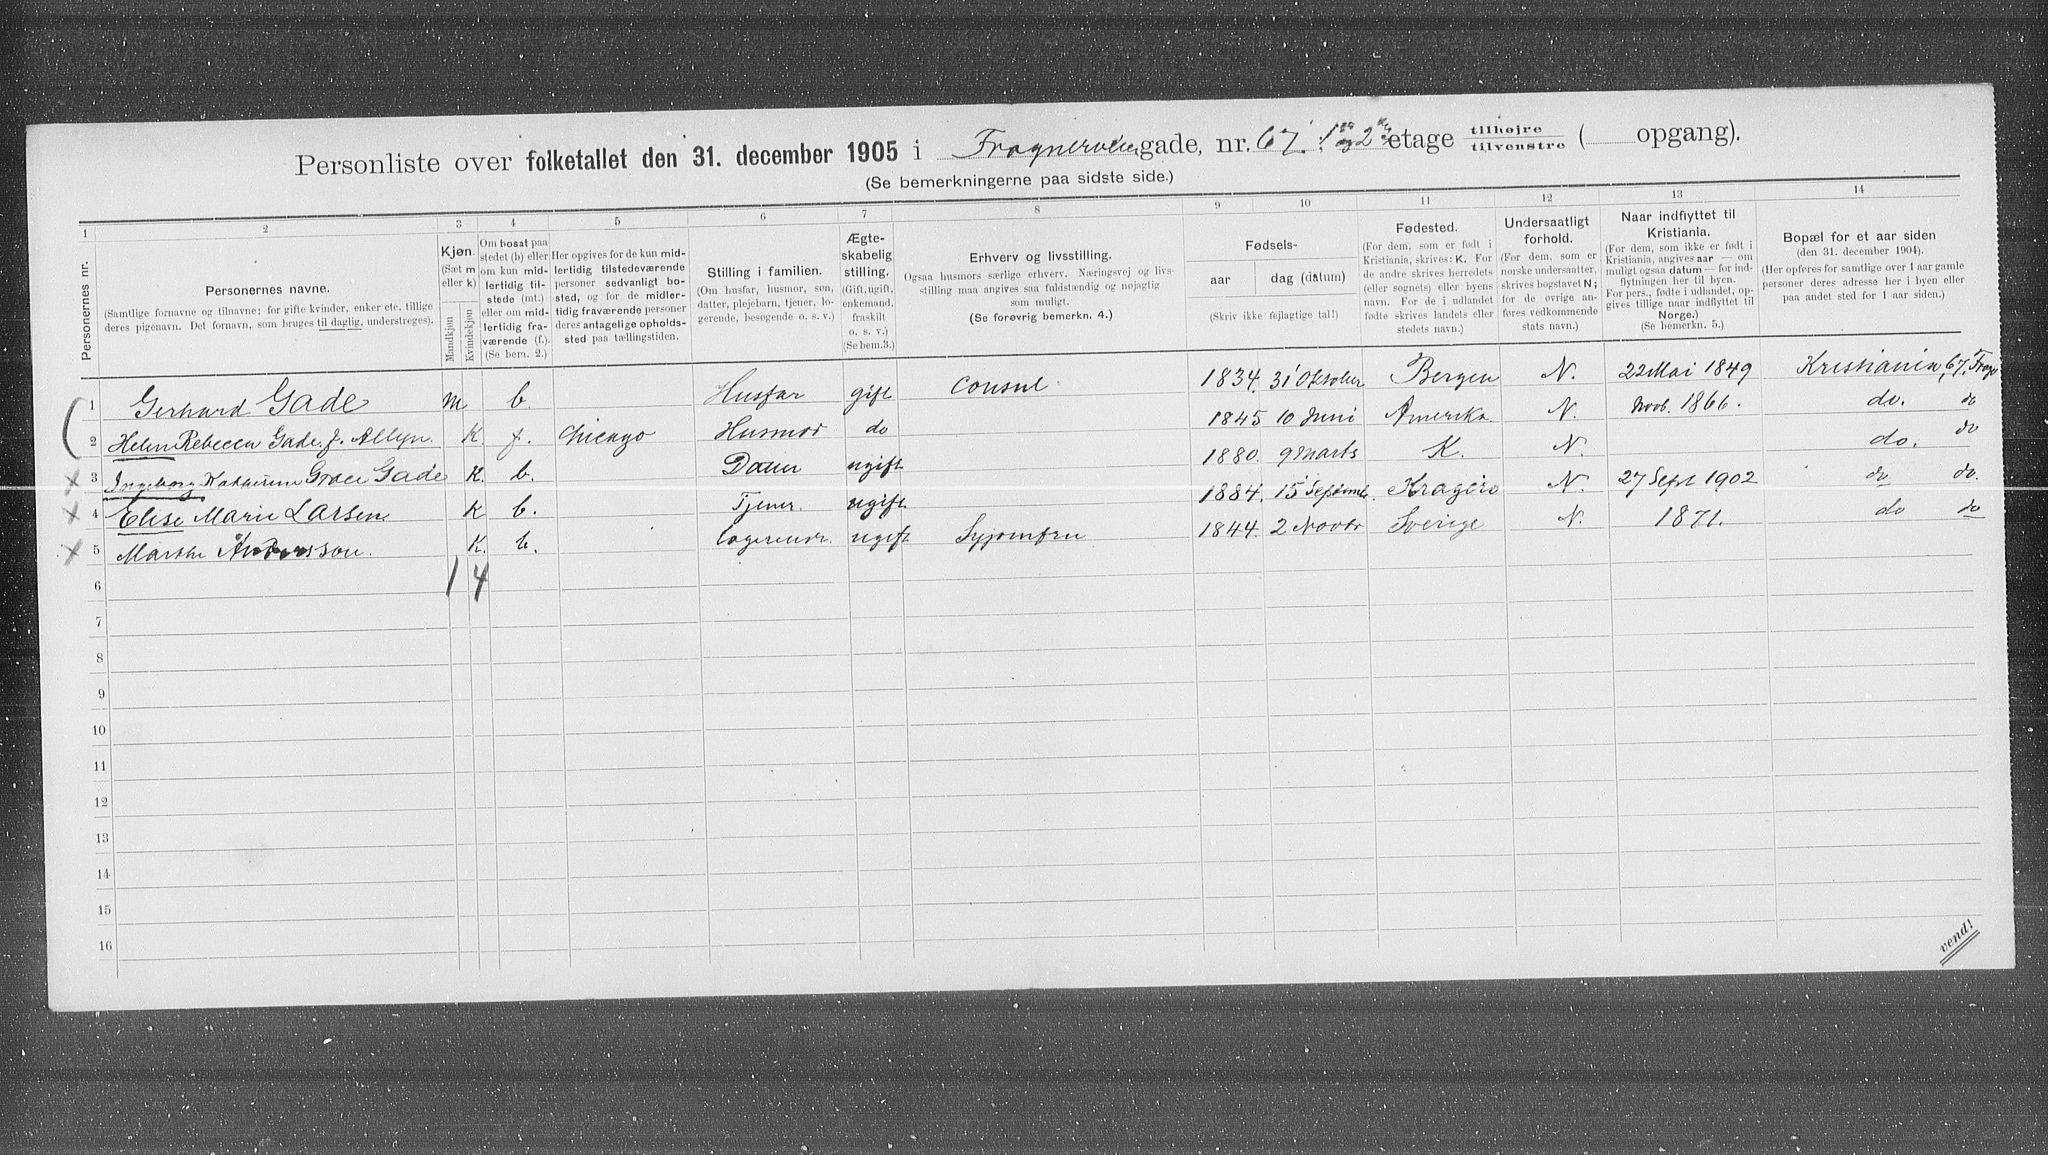 Personliste over folketallet den 31. december 1905 i Frognerveien gade, nr. 67. 1ste og 2den etage tilhøjre tilvenstre ( opgang).
(Se bemerkningerne paa sidste side.)
1 2 3 4 5 6 7 8 9 10 11 12 13 14
Personernes nr.
Personernes navne.
(Samtlige fornavne og tilnavne; for gifte kvinder, enker etc. tillige
deres pigenavn. Det fornavn, som bruges til daglig, understreges).
Kjøn.
(Sæt m
eller k)
Mandkjøn
Kvindekjøn
Om bosat paa
stedet (b) eller
om kun mid-
lertidig til-
stede (mt.)
eller om mid-
lertidig fra-
værende (f.).
(Se bem. 2.)
Her opgives for de kun mid-
lertidig tilstedeværende
personer sedvanligt bo-
sted, og for de midler-
tidig fraværende personer
deres antagelige opholds-
sted paa tællingstiden.
Stilling i familien.
(Om husfar, husmor, søn,
datter, plejebarn, tjener, lo-
gerende, besøgende o. s. v.)
Ægte-
skabelig
stilling.
(Gift, ugift,
enkemand,
fraskilt
o. s. v.)
(Se bem.3.)
Erhverv og livsstilling.
Ogsaa husmors særlige erhverv. Næringsvej og livs-
stilling maa angives saa fuldstændig og nøjagtig
som muligt.
(Se forøvrig bemerkn. 4.)
Fødsels-
aar dag (datum)
(Skriv ikke fejlagtige tal!)
Fødested.
(For dem, som er født i
Kristiania, skrives: K. For
de andre skrives herredets
(eller sognets) eller byens
navn. For de i udlandet
fødte skrives landets eller
stedets navn.)
Undersaatligt
forhold.
(For dem, som er
norske undersaatter,
skrives bogstavet N;
for de øvrige an-
føres vedkommende
stats navn.)
Naar indflyttet til
Kristiania.
(For dem, som ikke er født i
Kristiania, angives aar — om
muligt ogsaa datum — for ind-
flytningen her til byen.
For pers., fødte i udlandet, op-
gives tillige naar indflyttet til
Norge.)
(Se bemerkn. 5.)
Bopæl for et aar siden
(den 31. december 1904).
(Her opføres for samtlige over 1 aar gamle
personer deres adresse her i byen eller
paa andet sted for 1 aar siden.)
1 Gerhard Gade m b. Husfar gift consul 1834. 31 Oktober Bergen N. 22 Mai 1849 Kristiania, 67, Frogn
2 Helen Rebecca Gade f. Allyn. K f. Chicago Husmor do 1845 10 Juni Amerika N. Novb. 1866. do. do
3 Ingeborg Katherine Grace Gade K. b. Datter ugift 1880. 9 Marts K. N. do. do
4 Elise Marie Larsen K b. Tjener. ugift 1884. 15 Septemb. Kragerø N. 27 Sept 1902 do do.
5 Marthe Andersson. K. b. logerende. ugift Syjomfru 1844. 2 Novbr Sverige N. 1871. do do
6 1 4
7
8
9
10
11
12
13
14
15
16
vend!